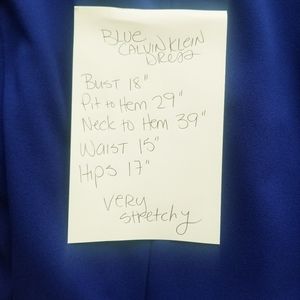 BLUE
CALVIN KLEIN
DRESS
BUST 18"
Pit to HEM 29"
NECK to HEM 39"
WAIST 15"
HIPS 17"
VERY
stretchy